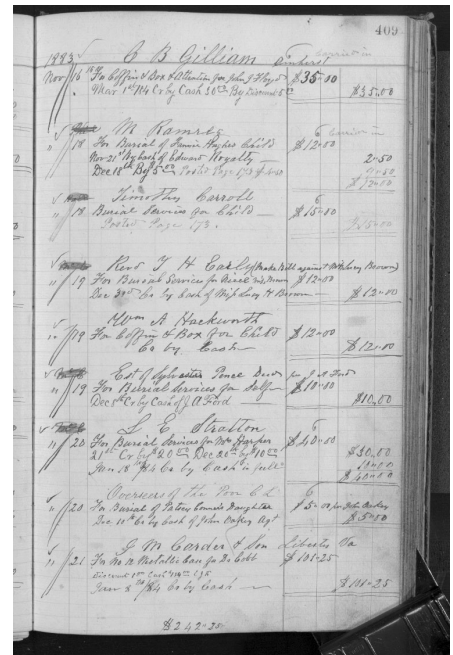 409
1883 C B Gilliam Amherst
Nov 16 For Coffin & Box & Attention for John J $35.00
Mar 1st 84 Cr by Cash 30.00 By Discount 5.00 $35.00
M Ramsey
" 18 For Burial of Hughes Child $12.00
Nov 21st by Cash of Edward Royalty 2.50
Dec 18th By 5.00 Posted Page 173
$12.00
Timothy Carroll
" 18 Burial Services for Child $15.00
Posted Page 173.
Revd T H Early (Make Bill against Miss Lucy Brown)
" 19 For Burial Services for $12.00
Dec Cr by Cash of Miss Lucy H Brown $12.00
Wm A Hackworth
" 19 For Coffin & Box for Child $12.00
Cr by Cash $12.00
Est of Sylvester Pence Decd per J A Ford
" 19 For Burial Services for Self $10.00
Dec 5th Cr by Cash of J A Ford $10.00
L E Stratton
" 20 For Burial Services for Mrs Harper $40.00
21st Cr by $20.00 Dec 20th by $10.00 $30.00
Jan 18th 84 Cr by Cash in full 10.00
$40.00
Overseers of the Poor
" 20 For Burial of Daughter $5.00 per John Oakey
Dec 11th Cr by Cash of John Oakey Agt $5.00
G M Carder & Son Liberty Va
" 21 For No Metallic $101.25
Jany 8th 84 Cr by Cash $101.25
$242.25